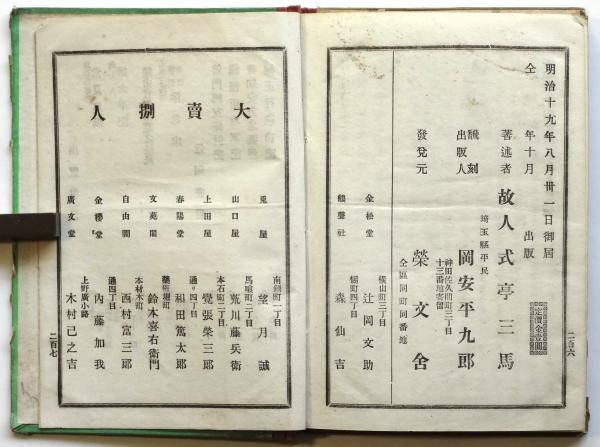 明治十九年八月卅一日御届
仝 年十月 出版
定價金壹圓
著述者 故人 式亭三馬
埼玉縣平民
飜刻出版人 岡安平九郎
神田佐久間町三丁目十三番地寄留
發兌元 榮文舍
仝區同町同番地
金松堂 横山町三丁目 辻岡文助
鶴聲社 橘町四丁目 森仙吉
二百六
大賣捌人
兎屋 南鍋町一丁目 望月誠
山口屋 馬喰町二丁目 荒川藤兵衛
上田屋 本石町二丁目 覺張榮三郎
春陽堂 通り四丁目 和田篤太郎
文苑閣 藥研堀町 鈴木喜右衛門
自由閣 本材木町 西村富三郎
金櫻堂 通四丁目 内藤加我
廣文堂 上野廣小路 木村己之吉
二百七